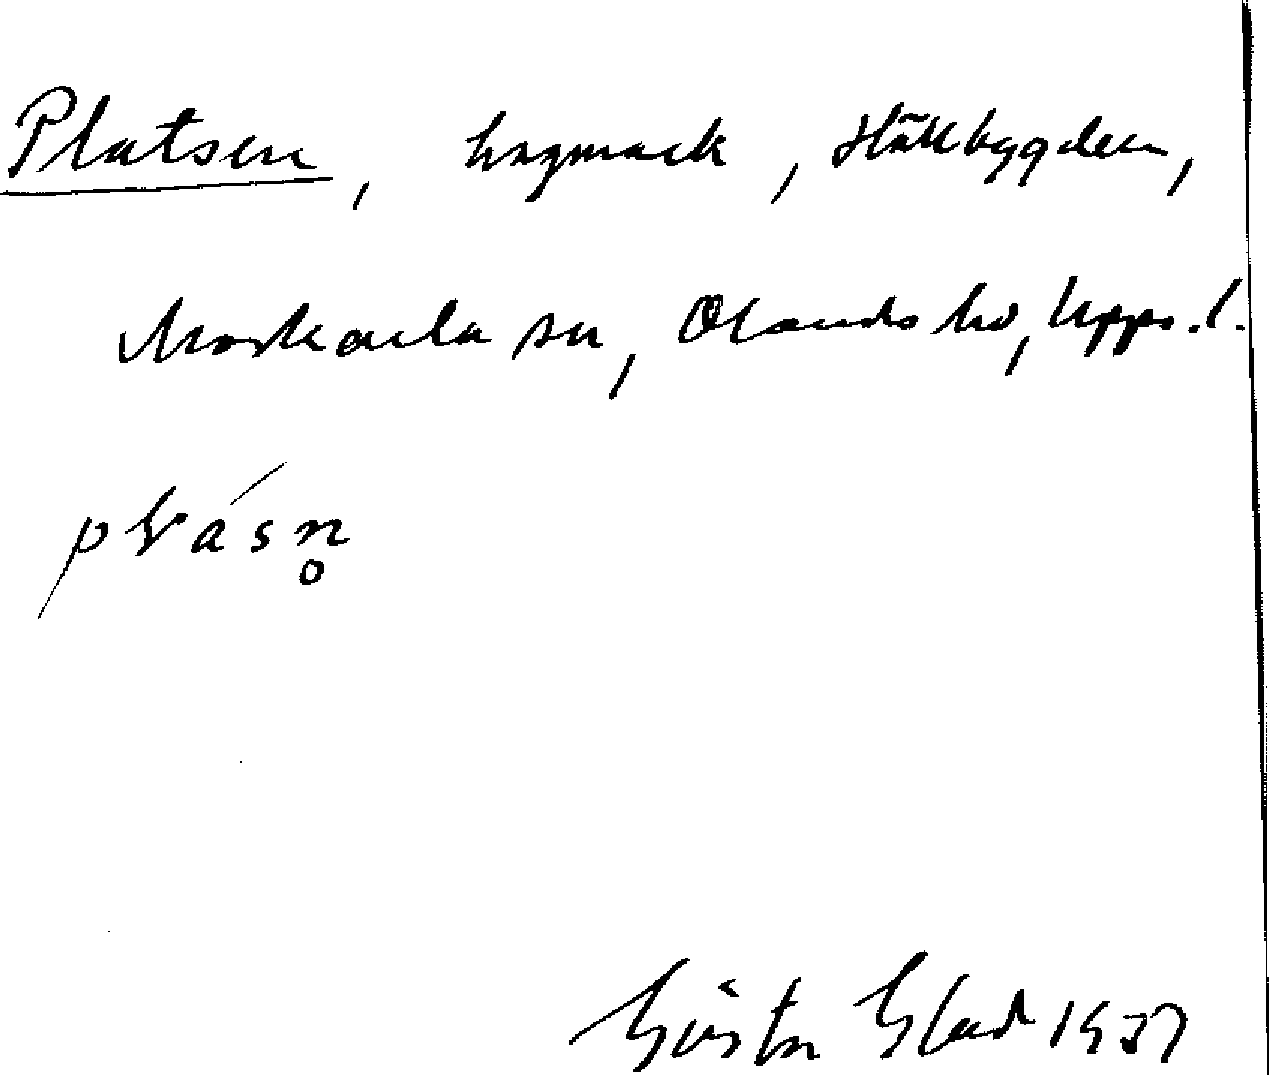 Platsen, hagmark, Hållbygden,
Morkarla sn, Olands hd, Upps. l.
Gösta Glad 1937